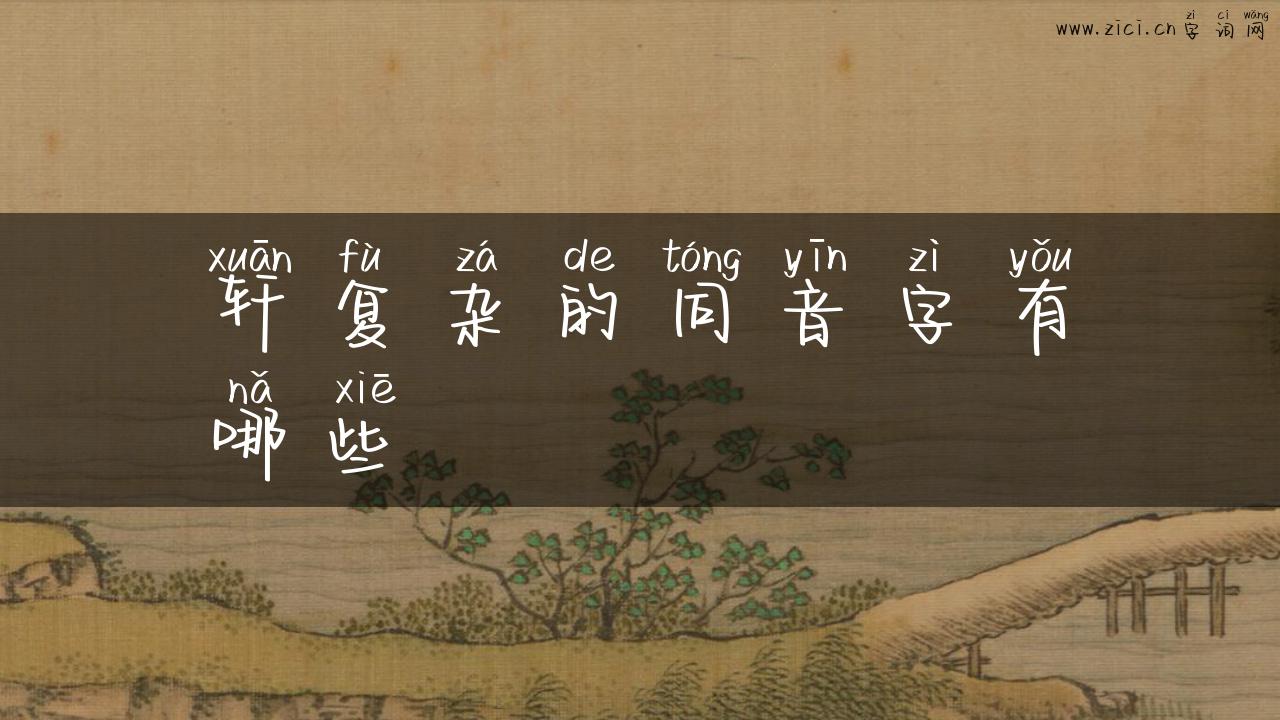 zì cí wǎng
www.zici.cn 字词网
xuān fù zá de tóng yīn zì yǒu
轩复杂的同音字有
nǎ xiē
哪些